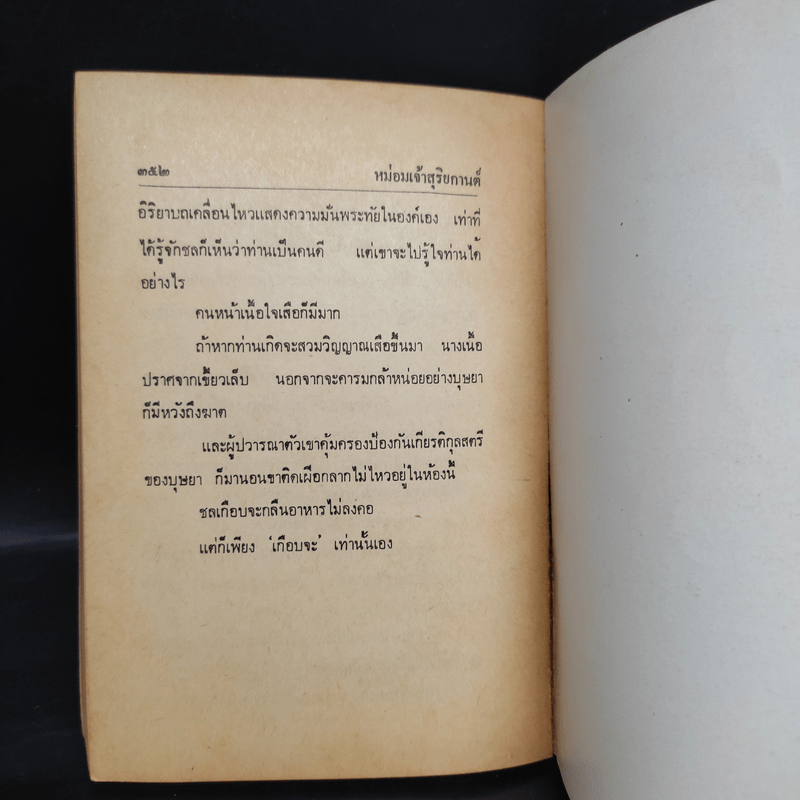 ๓๕๒ หม่อมเจ้าสุริยกานต์
อิริยาบถเคลื่อนไหวแสดงความมั่นพระทัยในองค์เอง เท่าที่
ได้รู้จักชลก็เห็นว่าท่านเป็นคนดี แต่เขาจะไปรู้ใจท่านได้
อย่างไร
คนหน้าเนื้อใจเสือก็มีมาก
ถ้าหากท่านเกิดจะสวมวิญญาณเสือขึ้นมา นางเนื้อ
ปราศจากเขี้ยวเล็บ นอกจากจะคารมกล้าหน่อยอย่างบุษยา
ก็มีหวังถึงฆาต
และผู้ปวารณาตัวเขาคุ้มครองป้องกันเกียรติกุลสตรี
ของบุษยา ก็มานอนขาติดเผือกลากไม่ไหวอยู่ในห้องนี้
ชลเกือบจะกลืนอาหารไม่ลงคอ
แต่ก็เพียง 'เกือบจะ' เท่านั้นเอง